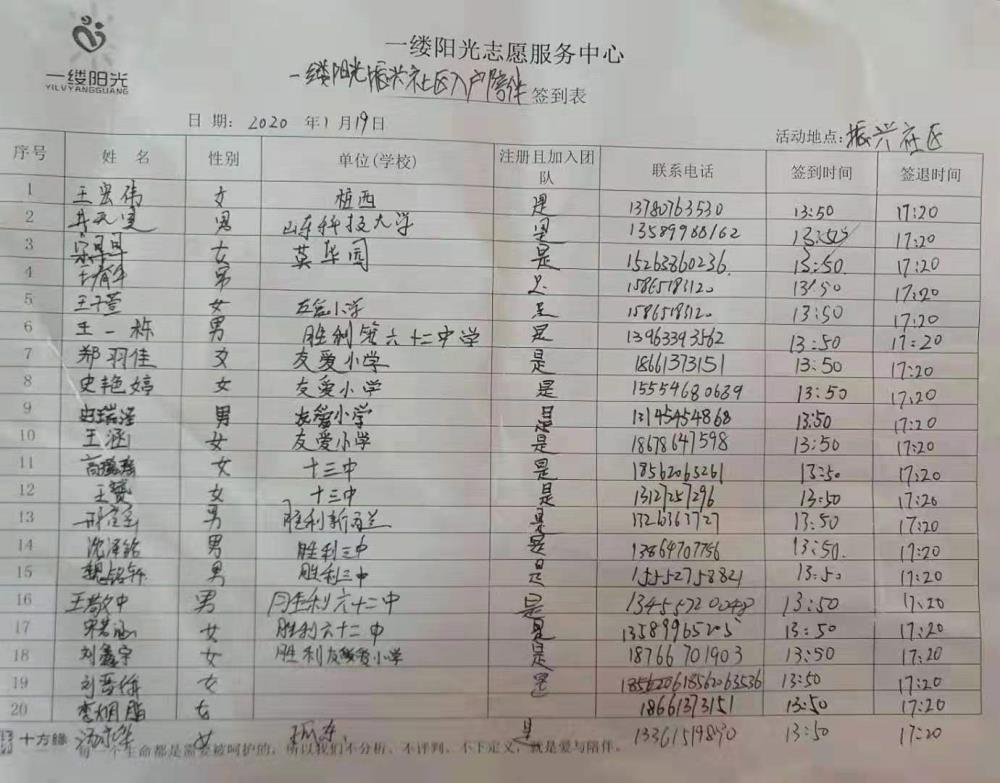 一缕阳光
YILVYANGGUANG
一缕阳光志愿服务中心
一缕阳光振兴社区入户陪伴 签到表
日 期: 2020 年1月19日
活动地点:振兴社区
序号 姓 名 性别 单位(学校) 注册且加入团队 联系电话 签到时间 签退时间
1 王宏伟 女 桩西 是 13780763530 13:50 17:20
2 男 山东科技大学 是 13589988162 13:50 17:20
3 女 英华园 是 15263860236 13:50 17:20
4 男 是 1586518312 13:50 17:20
5 王子萱 女 友爱小学 是 1586518312 13:50 17:20
6 王一栋 男 胜利第六十二中学 是 13963393562 13:50 17:20
7 郑羽佳 女 友爱小学 是 18661373151 13:50 17:20
8 史艳婷 女 友爱小学 是 15554680689 13:50 17:20
9 史瑞泽 男 友爱小学 是 13145454868 13:50 17:20
10 王涵 女 友爱小学 是 18678647598 13:50 17:20
11 女 十三中 是 18562065261 13:50 17:20
12 王赞 女 十三中 是 13127257296 13:50 17:20
13 男 是 13:50 17:20
14 沈泽铭 男 胜利三中 是 13864707756 13:50 17:20
15 魏铭轩 男 胜利三中 是 15552758821 13:50 17:20
16 王敬中 男 胜利六十二中 是 13455720048 13:50 17:20
17 宋若涵 女 胜利六十二中 是 13589965205 13:50 17:20
18 刘鑫宇 女 胜利友爱小学 是 18766701903 13:50 17:20
19 女 是 185620618562063536 13:50 17:20
20 李烟脂 女 18661373151 13:50 17:20
女 孤东 是 13361519890 13:50 17:20
十方缘 每一个生命都是需要被呵护的,所以我们不分析、不评判、不下定义,就是爱与陪伴。